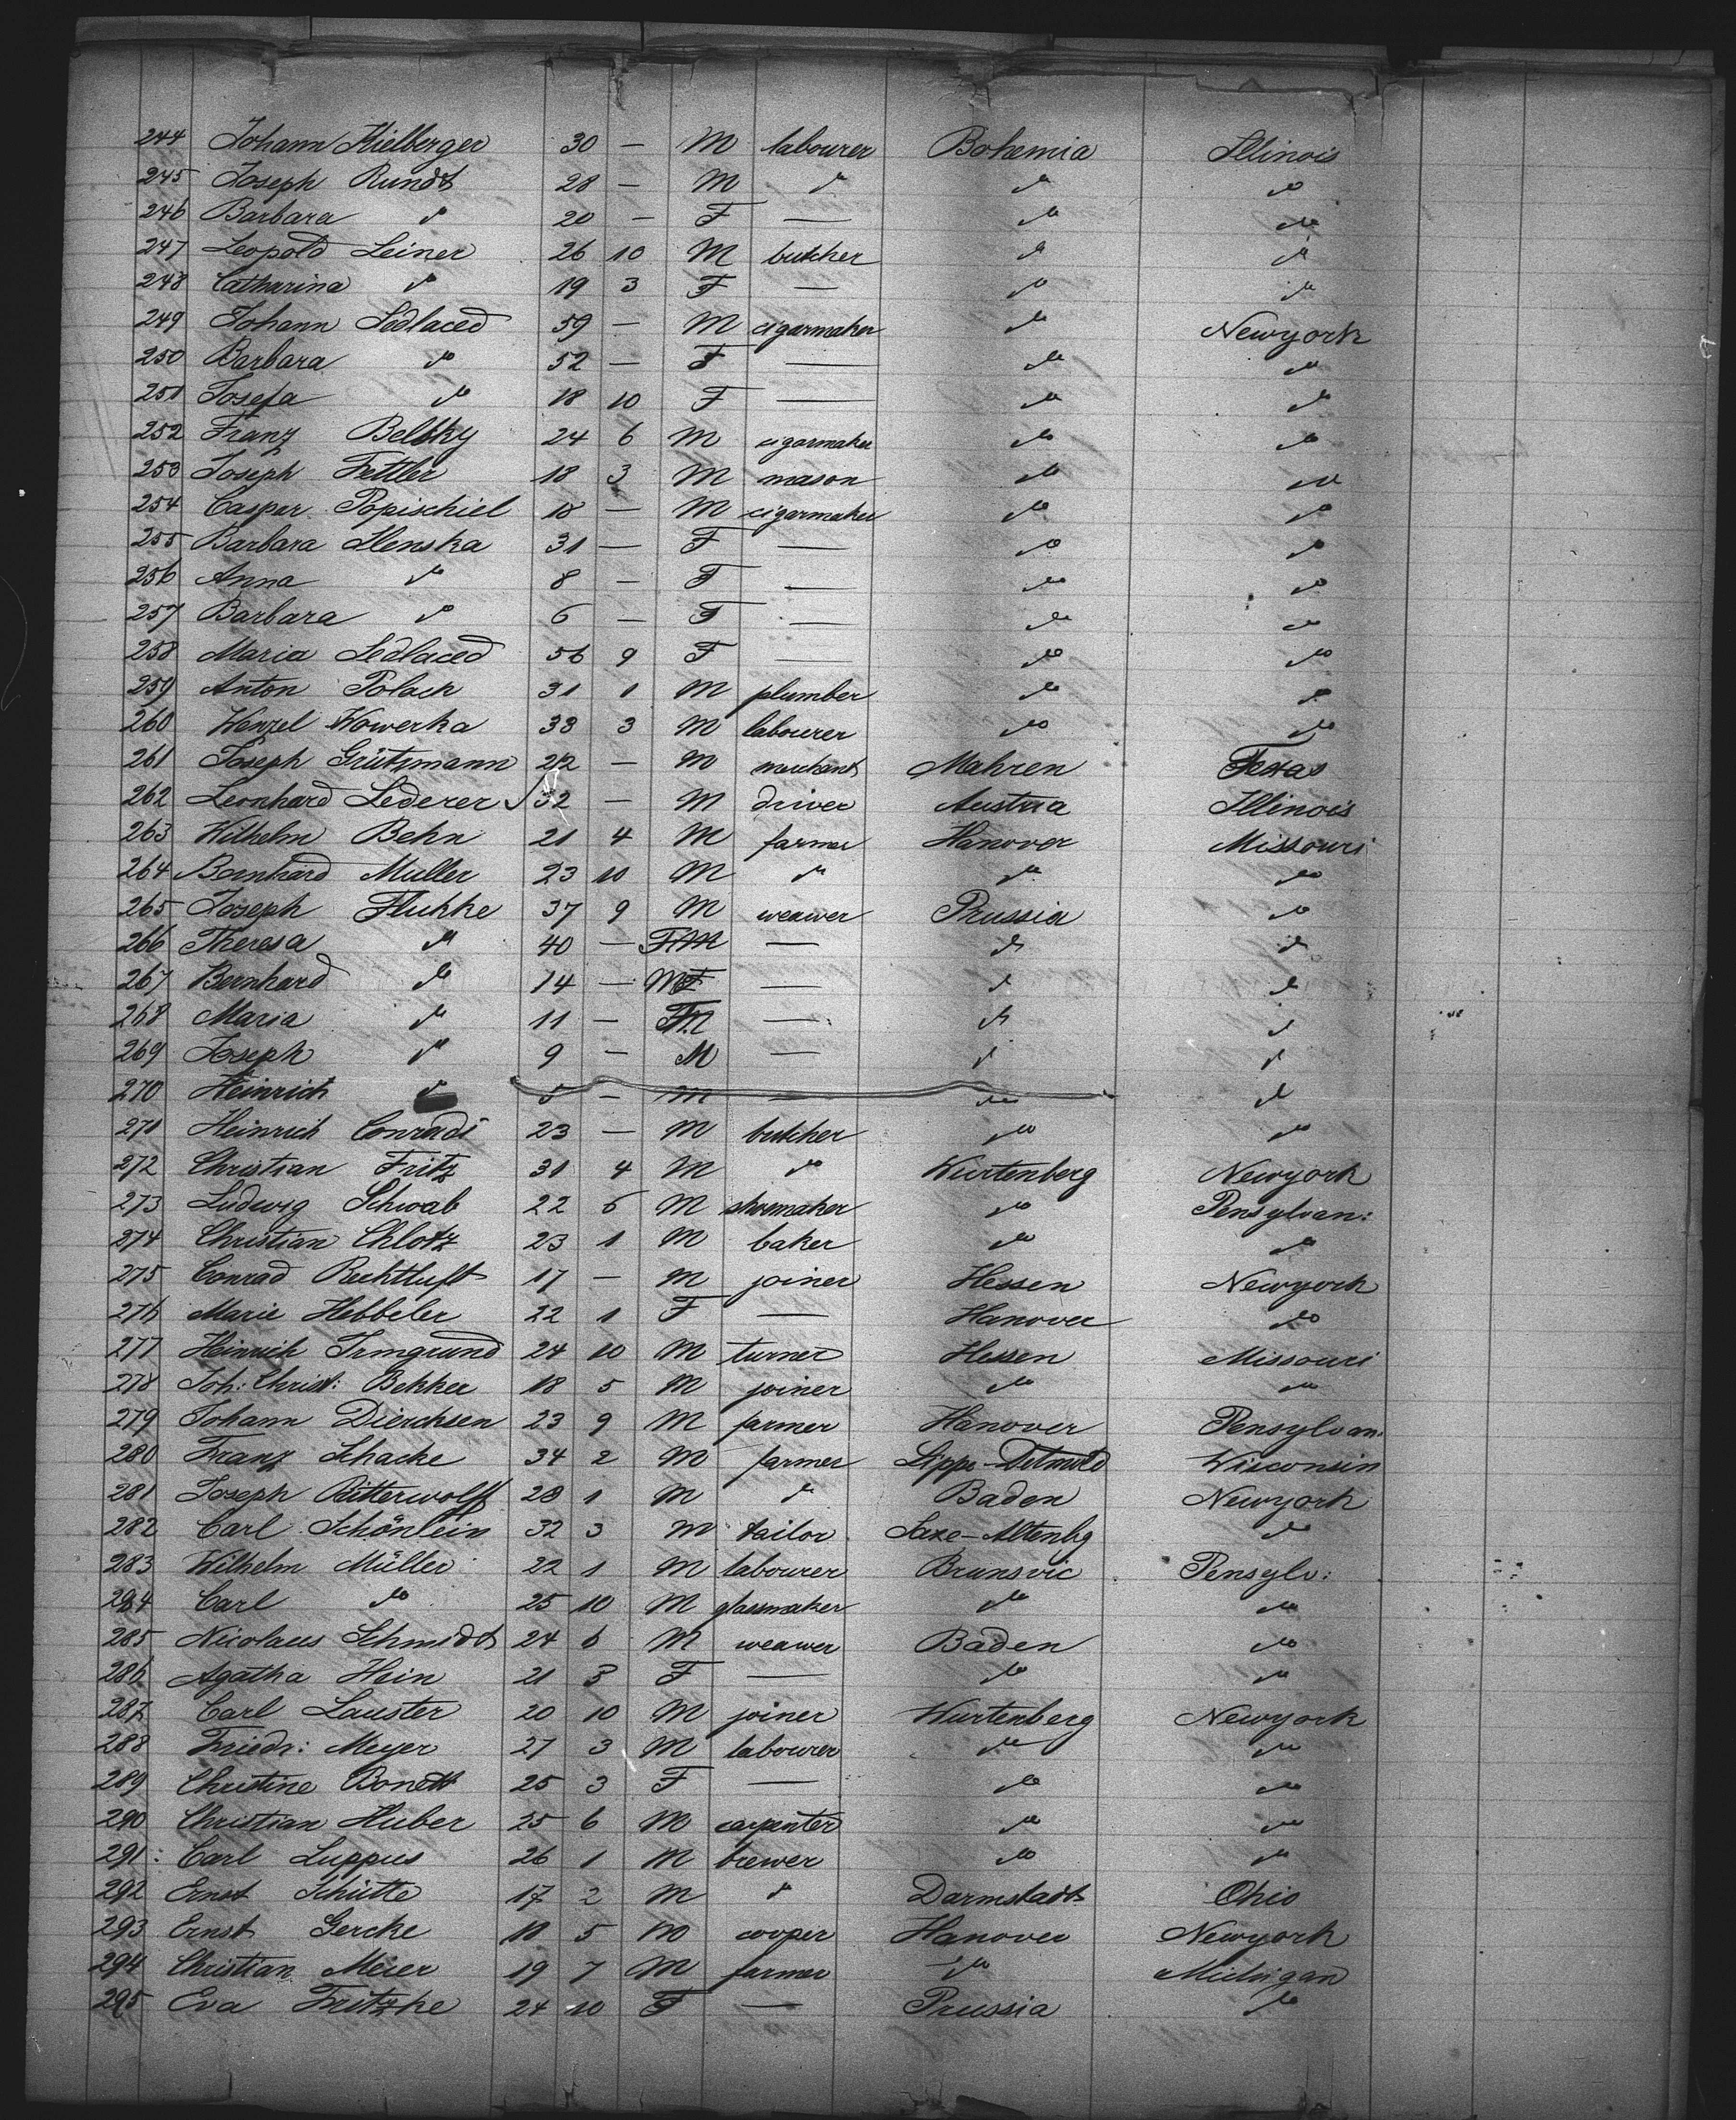 244 Johann Kielberger 30 — M labourer Bohemia Illinois
245 Joseph Rundt 28 — M do do do
246 Barbara do 20 — F — do do
247 Leopold Leiner 26 10 M butcher do do
248 Catharina do 19 3 F — do do
249 Johann Sedlaced 59 — M cigarmaker do Newyork
250 Barbara do 52 — F — do do
251 Josefa do 18 10 F — do do
252 Franz Belsky 24 6 M cigarmaker do do
253 Joseph Fettler 18 3 M mason do do
254 Caspar Popischiel 18 — M cigarmaker do do
255 Barbara Slenska 31 — F — do do
256 Anna do 8 — F — do do
257 Barbara do 6 — F — do do
258 Maria Sedlaced 56 9 F — do do
259 Anton Polack 31 1 M plumber do do
260 Wenzel Wowerka 33 3 M labourer do do
261 Joseph Grützmann 22 — M merchant Mahren Texas
262 Leonhard Lederer 32 — M driver Austria Illinois
263 Wilhelm Behn 21 4 M farmer Hanover Missouri
264 Bernhard Muller 23 10 M do do do
265 Joseph Fluhke 37 9 M weawer Prussia do
266 Theresa do 40 — F M — do do
267 Bernhard do 14 — M F — do do
268 Maria do 11 — F M — do do
269 Joseph do 9 — M — do do
270 Heinrich do 5 — M — do do
271 Heinrich Conradi 23 — M butcher do do
272 Christian Fritz 31 4 M do Wurtenberg Newyork
273 Ludwig Schwab 22 6 M shoemaker do Pensylvan:
274 Christian Chlotz 23 1 M baker do do
275 Conrad Rechtluft 17 — M joiner Hessen Newyork
276 Marie Hebbeler 22 1 F — Hanover do
277 Heinrich Irmgrund 24 10 M turner Hessen Missouri
278 Joh: Christ: Bekker 18 5 M joiner do do
279 Johann Dierchsen 23 9 M farmer Hanover Pensylvan:
280 Franz Schacke 34 2 M farmer Lippe-Detmold Wisconsin
281 Joseph Ritterwolff 28 1 M do Baden Newyork
282 Carl Schönlein 32 3 M tailor Saxe-Altenbg do
283 Wilhelm Müller 22 1 M labourer Brunsvic Pensylv:
284 Carl do 25 10 M glassmaker do do
285 Nicolaus Schmidt 24 6 M weawer Baden do
286 Agatha Hein 21 3 F — do do
287 Carl Lauster 20 10 M joiner Wurtenberg Newyork
288 Friedr: Meyer 27 3 M labourer do do
289 Christine Bonett 25 3 F — do do
290 Christian Huber 25 6 M carpenter do do
291 Carl Luppus 26 1 M brewer do do
292 Ernst Schütte 17 2 M do Darmstadt Ohio
293 Ernst Gercke 18 5 M cooper Hanover Newyork
294 Christian Meier 19 7 M farmer do Michigan
295 Eva Fritzke 24 10 F — Prussia do